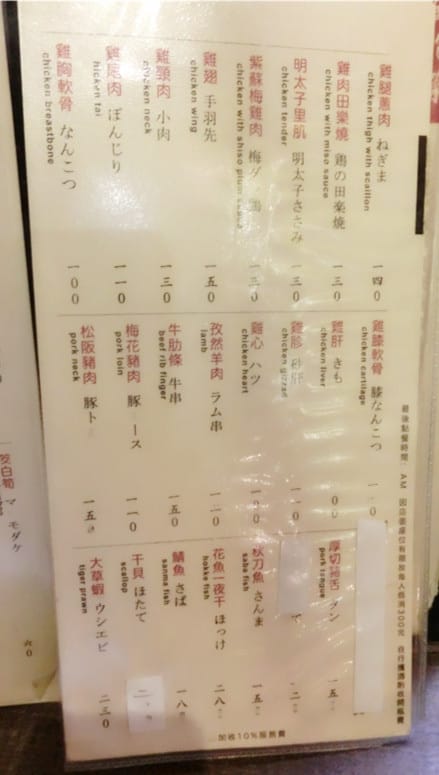 雞腿蔥肉 ねぎま
chicken thigh with scallion
一四0
雞肉田樂燒 鶏の田楽焼
chicken with miso sauce
一三0
明太子里肌 明太子ささみ
chicken tender
一三0
紫蘇梅雞肉 梅
chicken with shiso plum sauce
一三0
雞翅 手羽先
chicken wing
一五0
雞頸肉 小肉
chicken neck
一三0
雞尾肉 ぼんじり
hicken tai
一一0
雞胸軟骨 なんこつ
chicken breastbone
一00
雞膝軟骨 膝なんこつ
chicken cartilage
雞肝 きも
chicken liver
00
雞胗 砂肝
chicken gizzard
一一0
雞心 ハツ
chicken heart
一00
孜然羊肉 ラム串
lamb
一一0
牛肋條 牛串
beef rib finger
一五0
梅花豬肉 豚 ース
pork loin
一一0
松阪豬肉 豚ト
pork neck
一五0
厚切豬舌 タン
pork tongue
一五
秋刀魚 さんま
saba fish
一五
花魚一夜干 ほっけ
hokke fish
二八
鯖魚 さば
sanma fish
一八
干貝 ほたて
scallop
大草蝦 ウシエビ
tiger prawn
二三0
最後點餐時間 AM 因店面座位有限故每人低消300元 自行攜酒酌收開瓶費
加收10%服務費
茭白筍 マ モダケ
六0